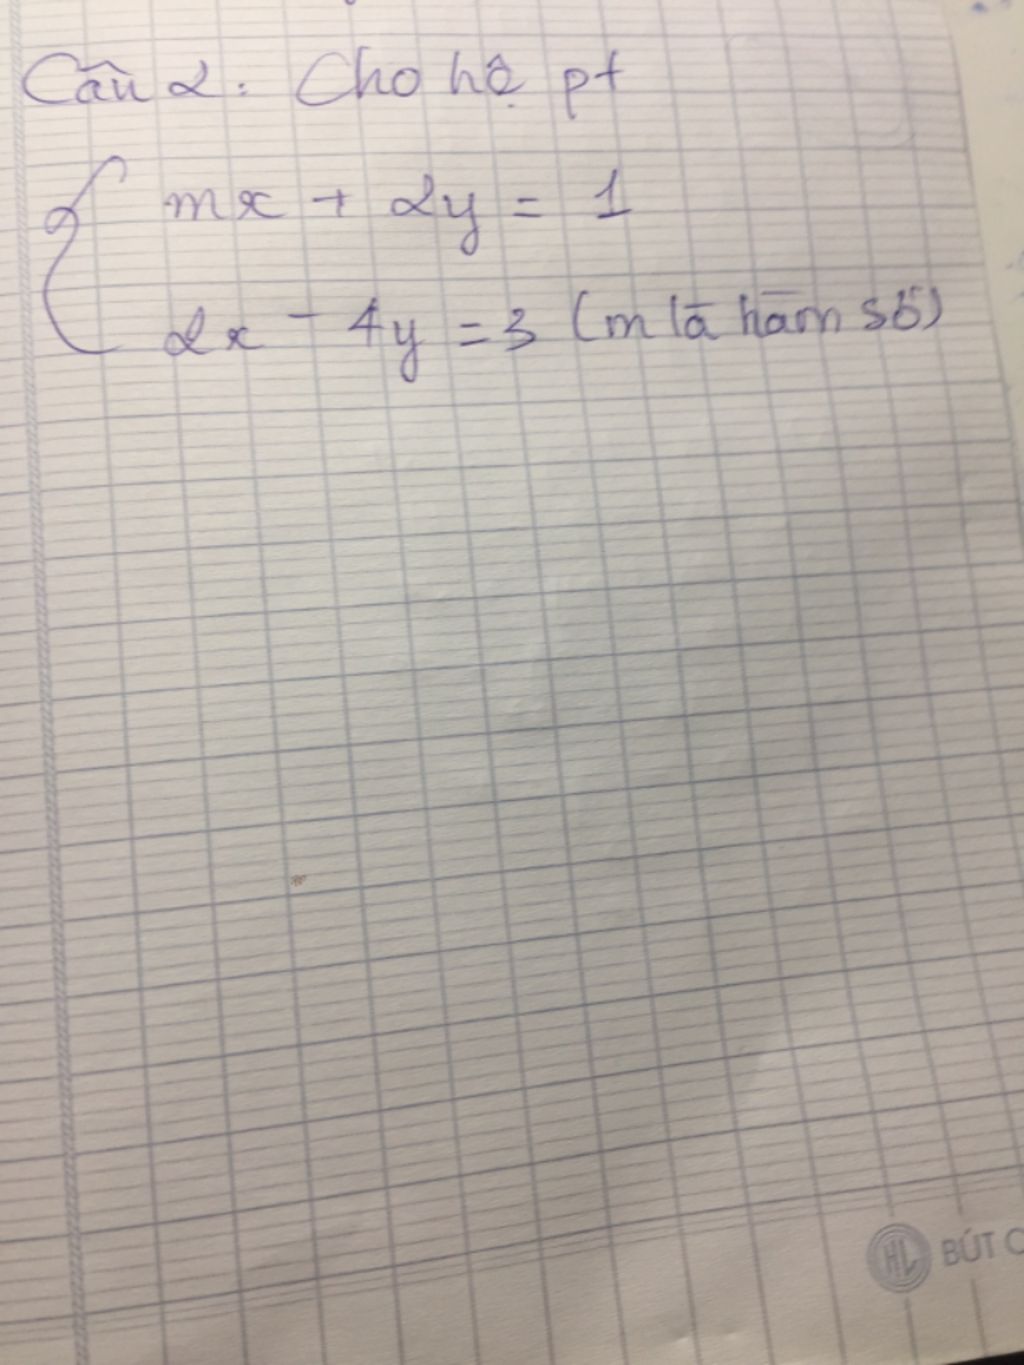 Câu 2: Cho hệ pt
mx + 2y = 1
2x - 4y = 3 (m là hàm số)
HL BÚT